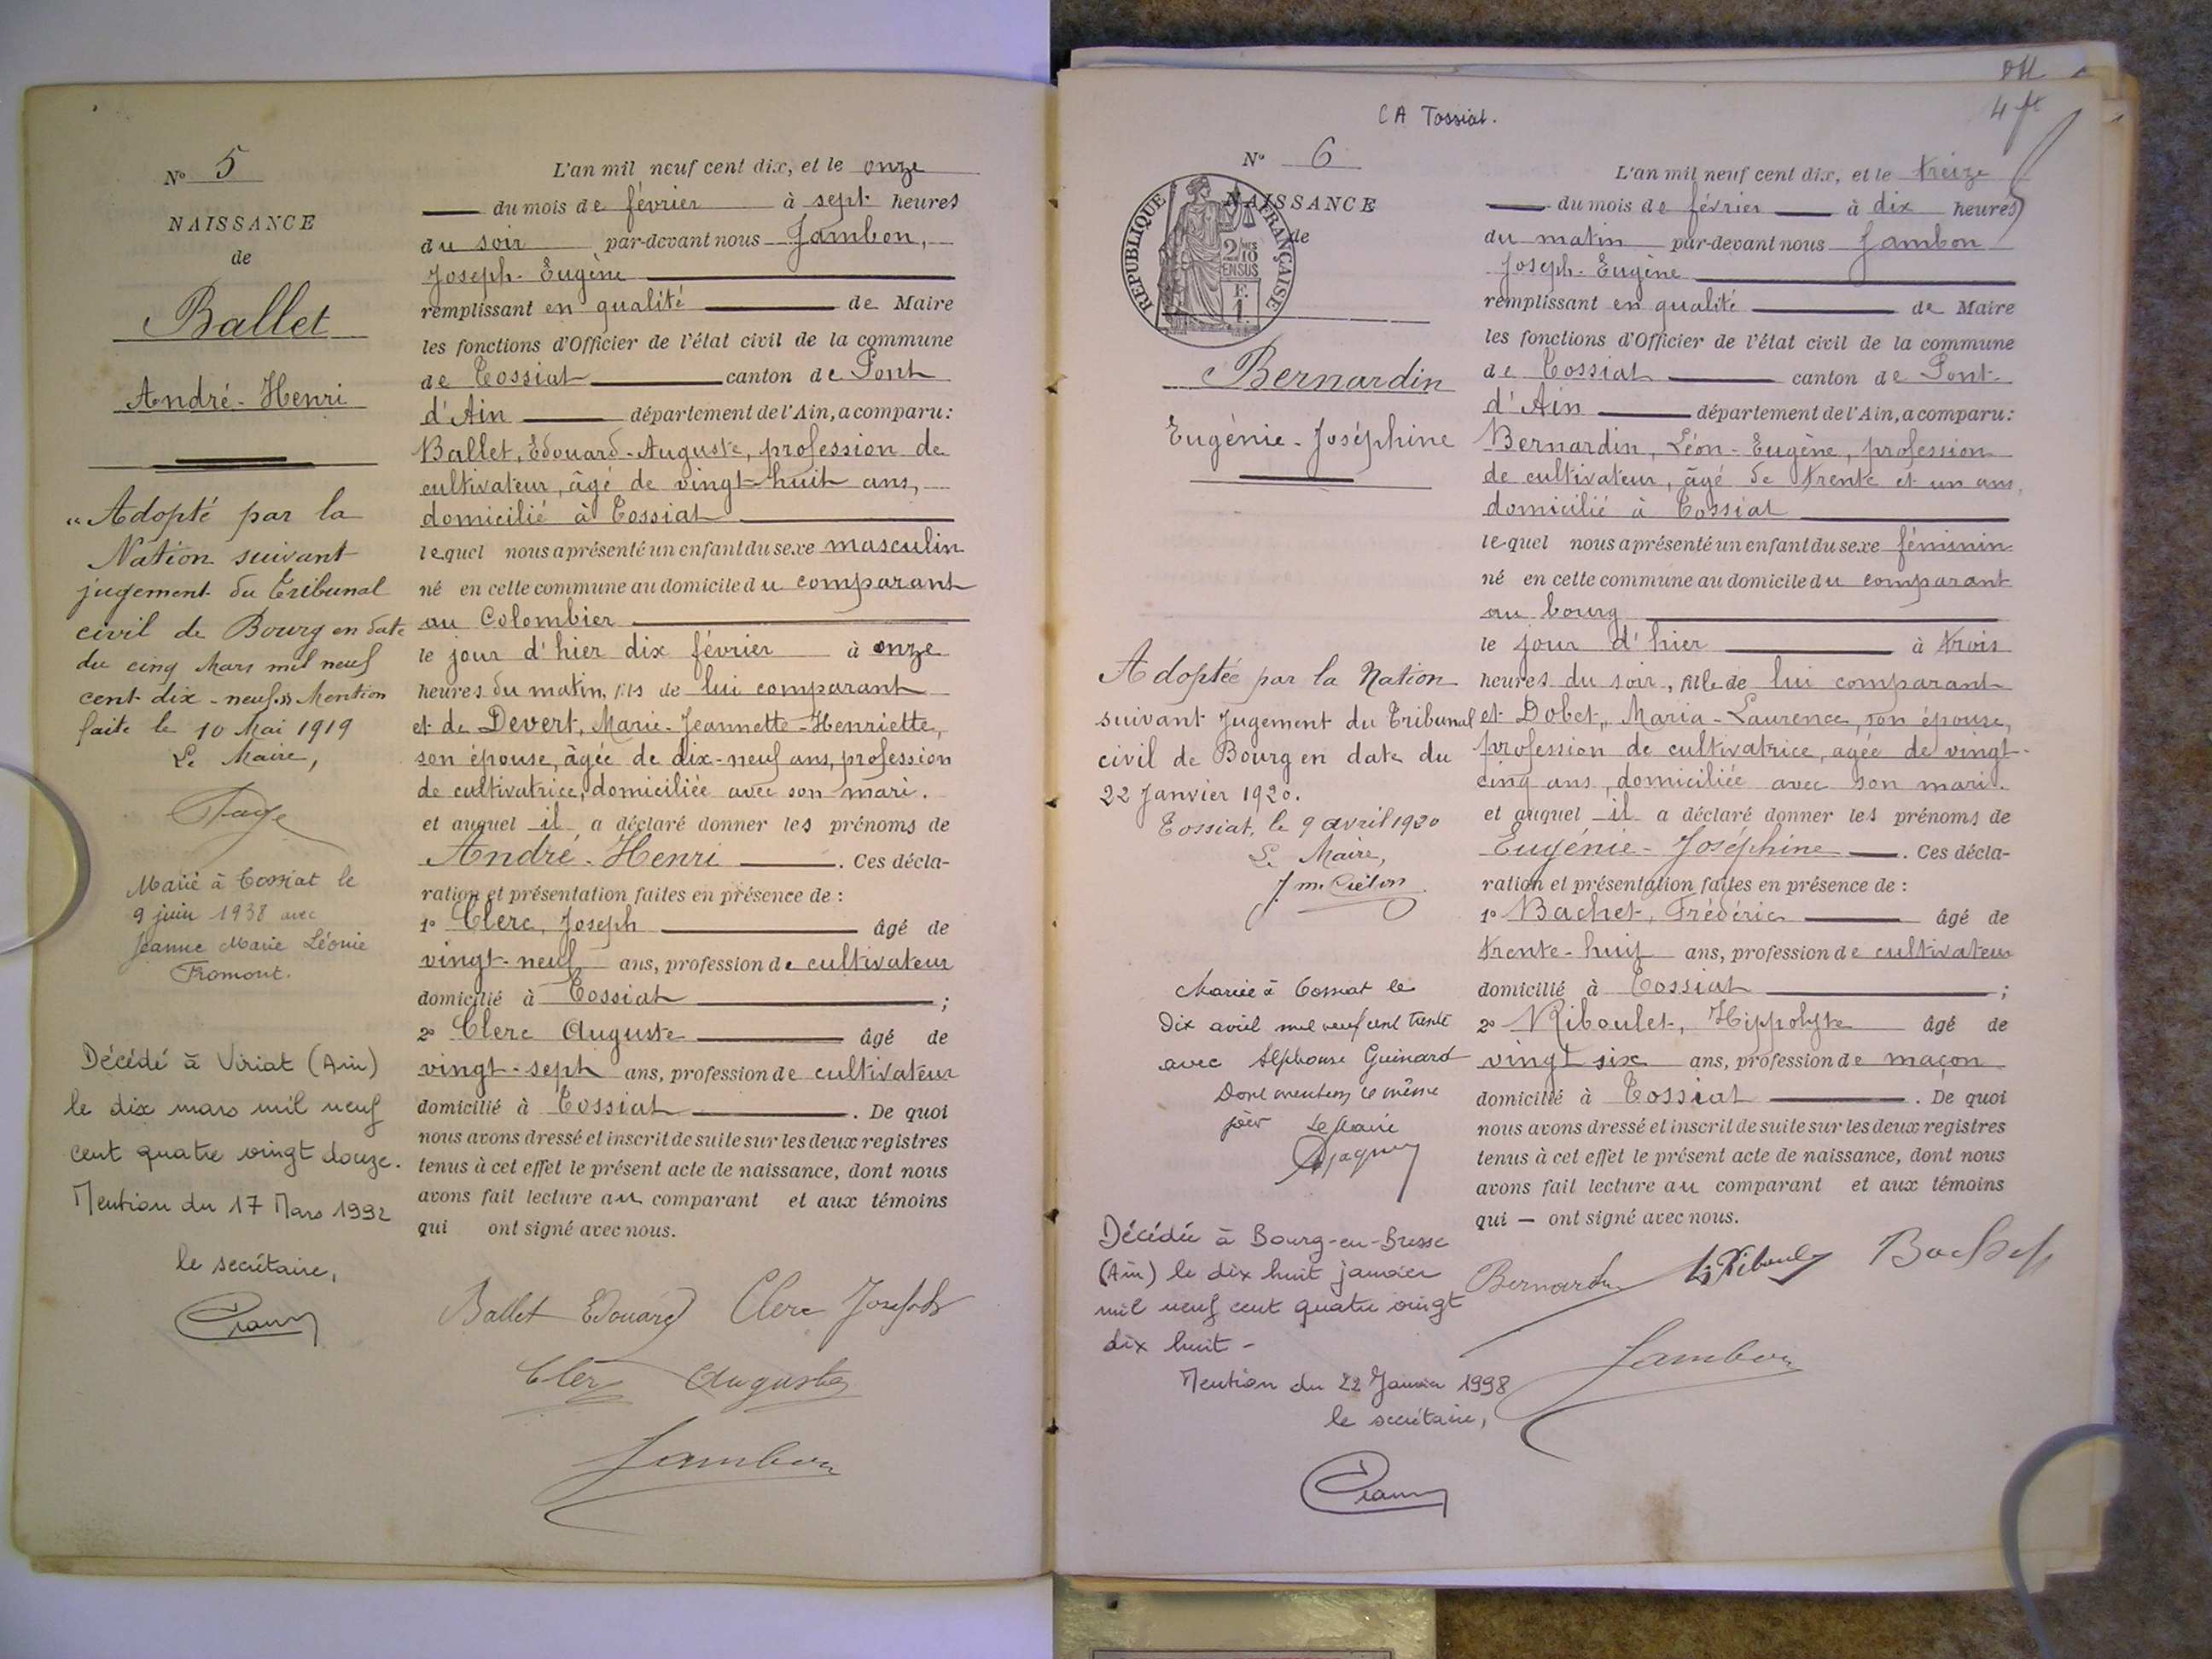 N° 5
NAISSANCE
de
Ballet
André-Henri
"Adopté par la
Nation suivant
jugement du Tribunal
civil de Bourg en date
du cinq Mars mil neuf
cent dix-neuf." Mention
faite le 10 Mai 1919
Le Maire,
Marié à Tossiat le
9 juin 1938 avec
Jeanne Marie Léonie
Fromont.
Décédé à Viriat (Ain)
le dix mars mil neuf
cent quatre vingt douze.
Mention du 17 Mars 1992
le secrétaire,
L'an mil neuf cent dix, et le onze
du mois de février à sept heures
du soir par-devant nous Jambon,
Joseph-Eugène
remplissant en qualité de Maire
les fonctions d'Officier de l'état civil de la commune
de Tossiat canton de Pont
d'Ain département de l'Ain, a comparu:
Ballet, Edouard-Auguste, profession de
cultivateur, âgé de vingt-huit ans,
domicilié à Tossiat
lequel nous a présenté un enfant du sexe masculin
né en cette commune au domicile du comparant
au Colombier
le jour d'hier dix février à onze
heures du matin, fils de lui comparant
et de Devert, Marie-Jeannette-Henriette,
son épouse, âgée de dix-neuf ans, profession
de cultivatrice, domiciliée avec son mari.
et auquel il a déclaré donner les prénoms de
André-Henri. Ces décla-
ration et présentation faites en présence de :
1° Clerc, Joseph âgé de
vingt-neuf ans, profession de cultivateur
domicilié à Tossiat ;
2° Clerc Auguste âgé de
vingt-sept ans, profession de cultivateur
domicilié à Tossiat . De quoi
nous avons dressé et inscrit de suite sur les deux registres
tenus à cet effet le présent acte de naissance, dont nous
avons fait lecture au comparant et aux témoins
qui ont signé avec nous.
Ballet Edouard Clerc Joseph
Clerc Auguste
Jambon
CA Tossiat.
4
N° 6
NAISSANCE
de
RÉPUBLIQUE FRANÇAISE
2/10
EN SUS
F.
1.
Bernardin
Eugénie-Joséphine
Adoptée par la Nation
suivant Jugement du Tribunal
civil de Bourg en date du
22 Janvier 1920.
Tossiat, le 9 avril 1920
Le Maire,
Mariée à Tossiat le
Dix avril mil neuf cent trente
avec Alphonse Guinard
Dont mention le même
jour Le Maire
Décédée à Bourg-en-Bresse
(Ain) le dix huit janvier
mil neuf cent quatre vingt
dix huit -
Mention du 22 Janvier 1998
le secrétaire,
L'an mil neuf cent dix, et le treize
du mois de février à dix heures
du matin par-devant nous Jambon
Joseph-Eugène
remplissant en qualité de Maire
les fonctions d'Officier de l'état civil de la commune
de Tossiat canton de Pont-
d'Ain département de l'Ain, a comparu:
Bernardin, Léon-Eugène, profession
de cultivateur, âgé de trente et un ans,
domicilié à Tossiat
lequel nous a présenté un enfant du sexe féminin
né en cette commune au domicile du comparant
au bourg
le jour d'hier à trois
heures du soir, fille de lui comparant
et Dobet, Maria-Laurence, son épouse,
profession de cultivatrice, agée de vingt-
cinq ans, domiciliée avec son mari.
et auquel il a déclaré donner les prénoms de
Eugénie-Joséphine. Ces décla-
ration et présentation faites en présence de :
1° Bachet, Frédéric âgé de
trente-huit ans, profession de cultivateur
domicilié à Tossiat ;
2° Riboulet, Hippolyte âgé de
vingt six ans, profession de maçon
domicilié à Tossiat . De quoi
nous avons dressé et inscrit de suite sur les deux registres
tenus à cet effet le présent acte de naissance, dont nous
avons fait lecture au comparant et aux témoins
qui — ont signé avec nous.
Bernardin H Riboulet Bachet
Jambon